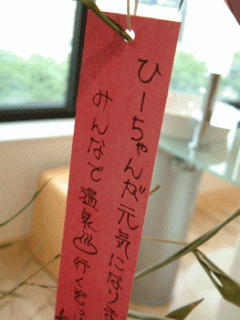 ひーちゃんが元気になり
みんなで温泉♨行くぞっ